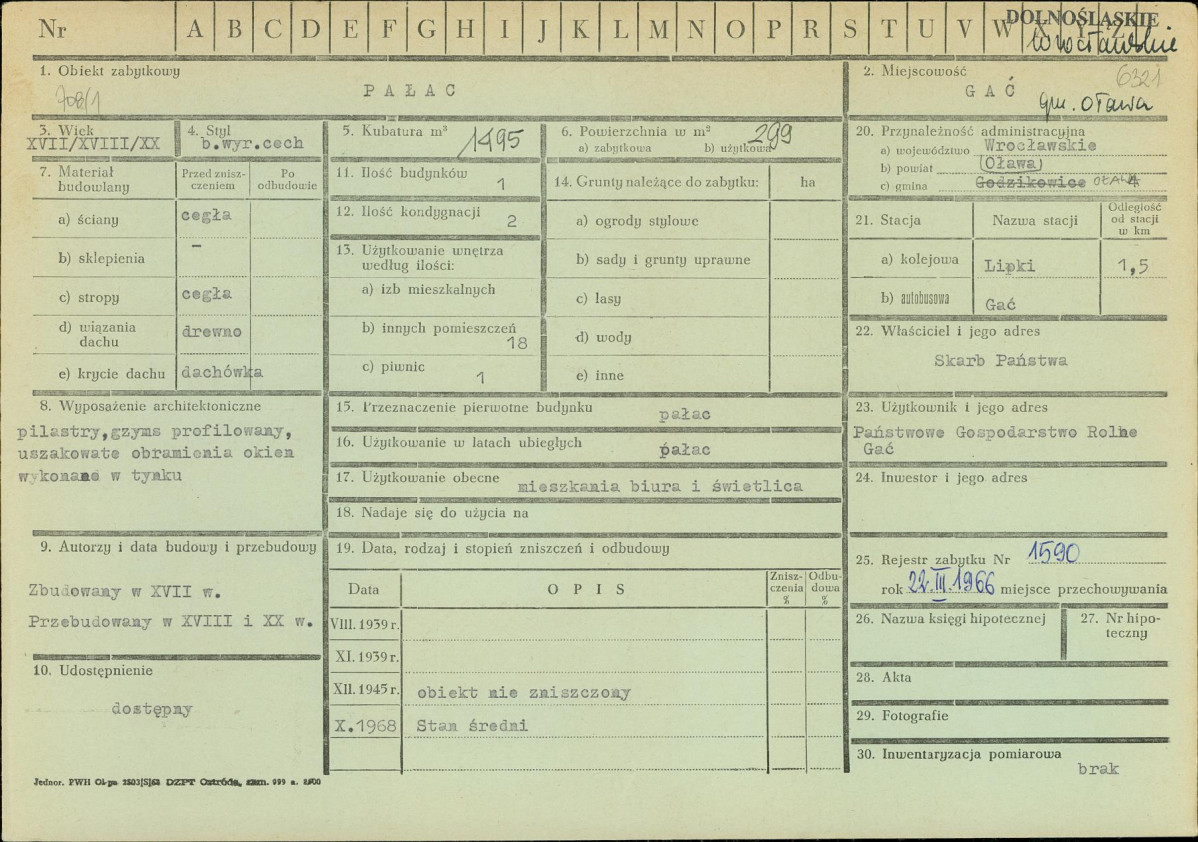 Nr A B C D E F G H I J K L M N O P R S T U V W X Y Z
DOLNOŚLĄSKIE
Wrocławskie
1. Obiekt zabytkowy
708/1
PAŁAC
2. Miejscowość
6321
GAĆ
gm. Oława
3. Wiek
XVII/XVIII/XX
4. Styl
b.wyr.cech
5. Kubatura m³
1495
6. Powierzchnia w m²
299
a) zabytkowa b) użytkowa
20. Przynależność administracyjna
a) województwo Wrocławskie
b) powiat (Oława)
c) gmina Godzikowice OŁAWA
7. Materiał budowlany
Przed zniszczeniem
Po odbudowie
a) ściany cegła
b) sklepienia –
c) stropy cegła
d) wiązania dachu drewno
e) krycie dachu dachówka
11. Ilość budynków
1
12. Ilość kondygnacji
2
13. Użytkowanie wnętrza według ilości:
a) izb mieszkalnych
b) innych pomieszczeń
18
c) piwnic
1
14. Grunty należące do zabytku: ha
a) ogrody stylowe
b) sady i grunty uprawne
c) lasy
d) wody
e) inne
21. Stacja Nazwa stacji Odległość od stacji w km
a) kolejowa Lipki 1,5
b) autobusowa Gać
22. Właściciel i jego adres
Skarb Państwa
8. Wyposażenie architektoniczne
pilastry,gzyms profilowany,
uszakowate obramienia okien
wykonane w tynku
15. Przeznaczenie pierwotne budynku pałac
16. Użytkowanie w latach ubiegłych pałac
17. Użytkowanie obecne mieszkania biura i świetlica
18. Nadaje się do użycia na
23. Użytkownik i jego adres
Państwowe Gospodarstwo Rolne
Gać
24. Inwestor i jego adres
9. Autorzy i data budowy i przebudowy
Zbudowany w XVII w.
Przebudowany w XVIII i XX w.
10. Udostępnienie
dostępny
19. Data, rodzaj i stopień zniszczeń i odbudowy
Data OPIS Zniszczenia % Odbudowa %
VIII. 1939 r.
XI. 1939 r.
XII. 1945 r. obiekt nie zniszczony
X.1968 Stan średni
25. Rejestr zabytku Nr 1590
rok 22.III.1966 miejsce przechowywania
26. Nazwa księgi hipotecznej
27. Nr hipoteczny
28. Akta
29. Fotografie
30. Inwentaryzacja pomiarowa
brak
Jednor. PWH Ol-pa 1503/S/68 DZPT Ostróda, zam. 999 n. 2500